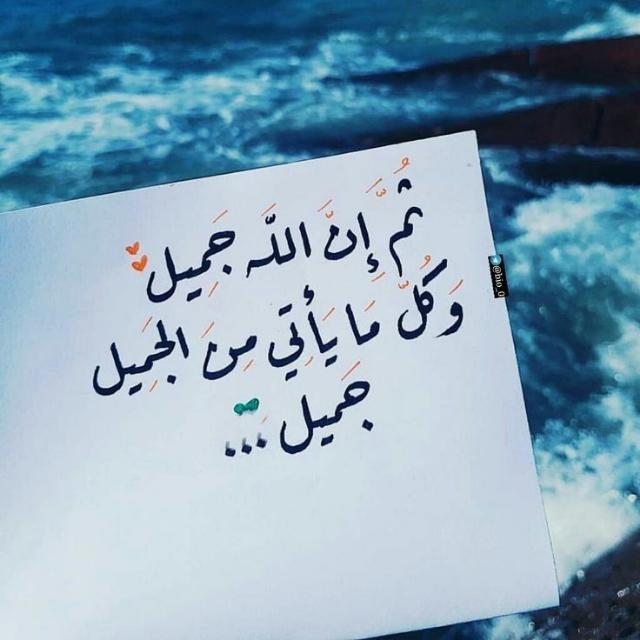 ثُمَّ إِنَّ اللَّه جَمِيل
وَكُلُّ مَا يَأتِي مِنَ الجَمِيل
جَميل ...
@bio_0